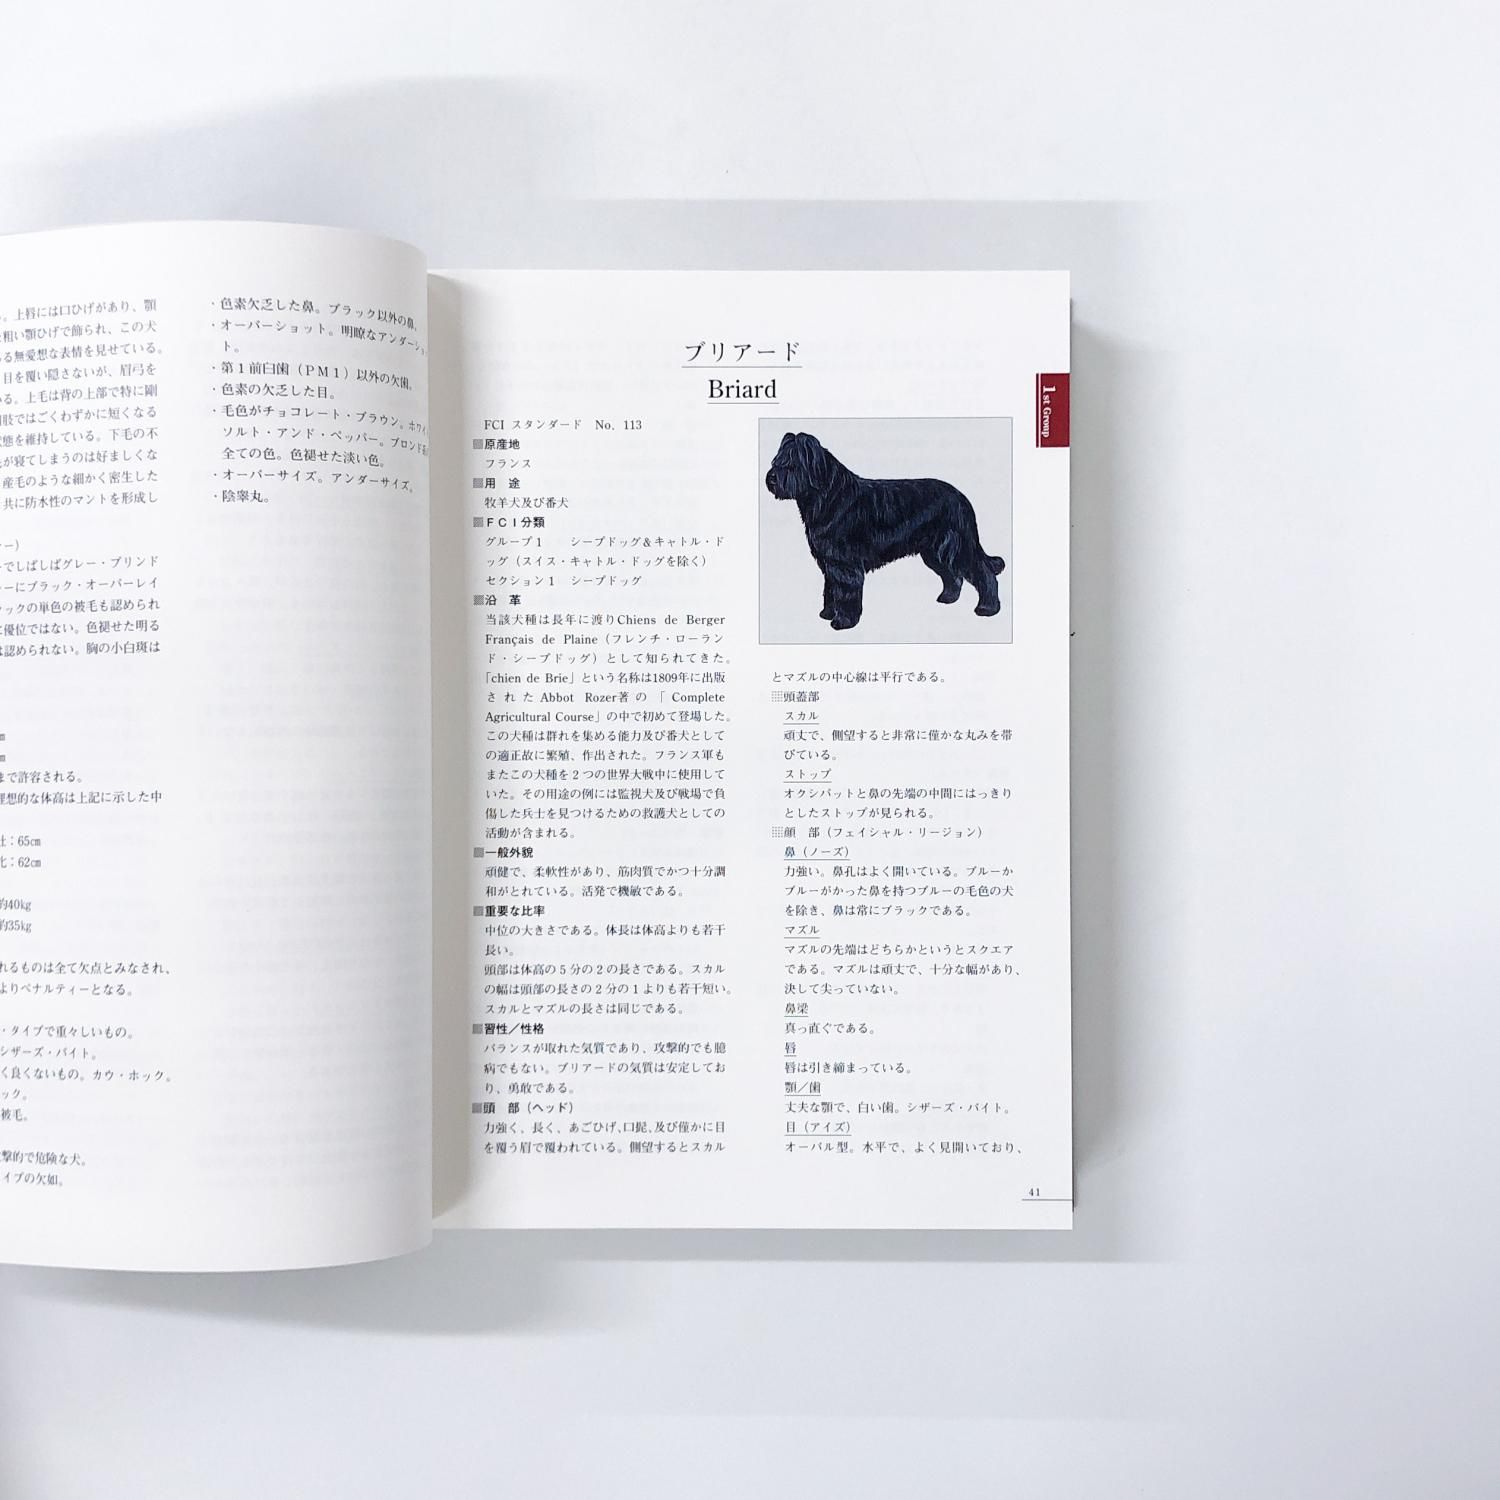 。上唇には口ひげがあり、顎
粗い顎ひげで飾られ、この犬
る無愛想な表情を見せている。
目を覆い隠さないが、眉弓を
いる。上毛は背の上部で特に剛
肢ではごくわずかに短くなる
状態を維持している。下毛の不
が寝てしまうのは好ましくな
産毛のような細かく密生した
共に防水性のマントを形成し
ー）
でしばしばグレー・ブリンド
ーにブラック・オーバーレイ
ックの単色の被毛も認められ
優位ではない。色褪せた明る
は認められない。胸の小白斑は
まで許容される。
理想的な体高は上記に示した中
：65㎝
：62㎝
約40㎏
約35㎏
れるものは全て欠点とみなされ、
よりペナルティーとなる。
・タイプで重々しいもの。
シザーズ・バイト。
く良くないもの。カウ・ホック。
ック。
被毛。
撃的で危険な犬。
イプの欠如。
・色素欠乏した鼻。ブラック以外の鼻。
・オーバーショット。明瞭なアンダーショ
ト。
・第１前臼歯（ＰＭ１）以外の欠歯。
・色素の欠乏した目。
・毛色がチョコレート・ブラウン。ホワイ
ソルト・アンド・ペッパー。ブロンド
全ての色。色褪せた淡い色。
・オーバーサイズ。アンダーサイズ。
・陰睾丸。
ブリアード
Briard
1st Group
FCI スタンダード　No. 113
原産地
フランス
用　途
牧羊犬及び番犬
ＦＣＩ分類
グループ１　シープドッグ＆キャトル・ド
ッグ（スイス・キャトル・ドッグを除く）
セクション１　シープドッグ
沿　革
当該犬種は長年に渡りChiens de Berger
Français de Plaine（フレンチ・ローラン
ド・シープドッグ）として知られてきた。
「chien de Brie」という名称は1809年に出版
されたAbbot Rozer著の「Complete
Agricultural Course」の中で初めて登場した。
この犬種は群れを集める能力及び番犬として
の適正故に繁殖、作出された。フランス軍も
またこの犬種を２つの世界大戦中に使用して
いた。その用途の例には監視犬及び戦場で負
傷した兵士を見つけるための救護犬としての
活動が含まれる。
一般外貌
頑健で、柔軟性があり、筋肉質でかつ十分調
和がとれている。活発で機敏である。
重要な比率
中位の大きさである。体長は体高よりも若干
長い。
頭部は体高の５分の２の長さである。スカル
の幅は頭部の長さの２分の１よりも若干短い。
スカルとマズルの長さは同じである。
習性／性格
バランスが取れた気質であり、攻撃的でも臆
病でもない。ブリアードの気質は安定してお
り、勇敢である。
頭　部（ヘッド）
力強く、長く、あごひげ、口髭、及び僅かに目
を覆う眉で覆われている。側望するとスカル
とマズルの中心線は平行である。
頭蓋部
スカル
頑丈で、側望すると非常に僅かな丸みを帯
びている。
ストップ
オクシパットと鼻の先端の中間にはっきり
としたストップが見られる。
顔　部（フェイシャル・リージョン）
鼻（ノーズ）
力強い。鼻孔はよく開いている。ブルーか
ブルーがかった鼻を持つブルーの毛色の犬
を除き、鼻は常にブラックである。
マズル
マズルの先端はどちらかというとスクエア
である。マズルは頑丈で、十分な幅があり、
決して尖っていない。
鼻梁
真っ直ぐである。
唇
唇は引き締まっている。
顎／歯
丈夫な顎で、白い歯。シザーズ・バイト。
目（アイズ）
オーバル型。水平で、よく見開いており、
41